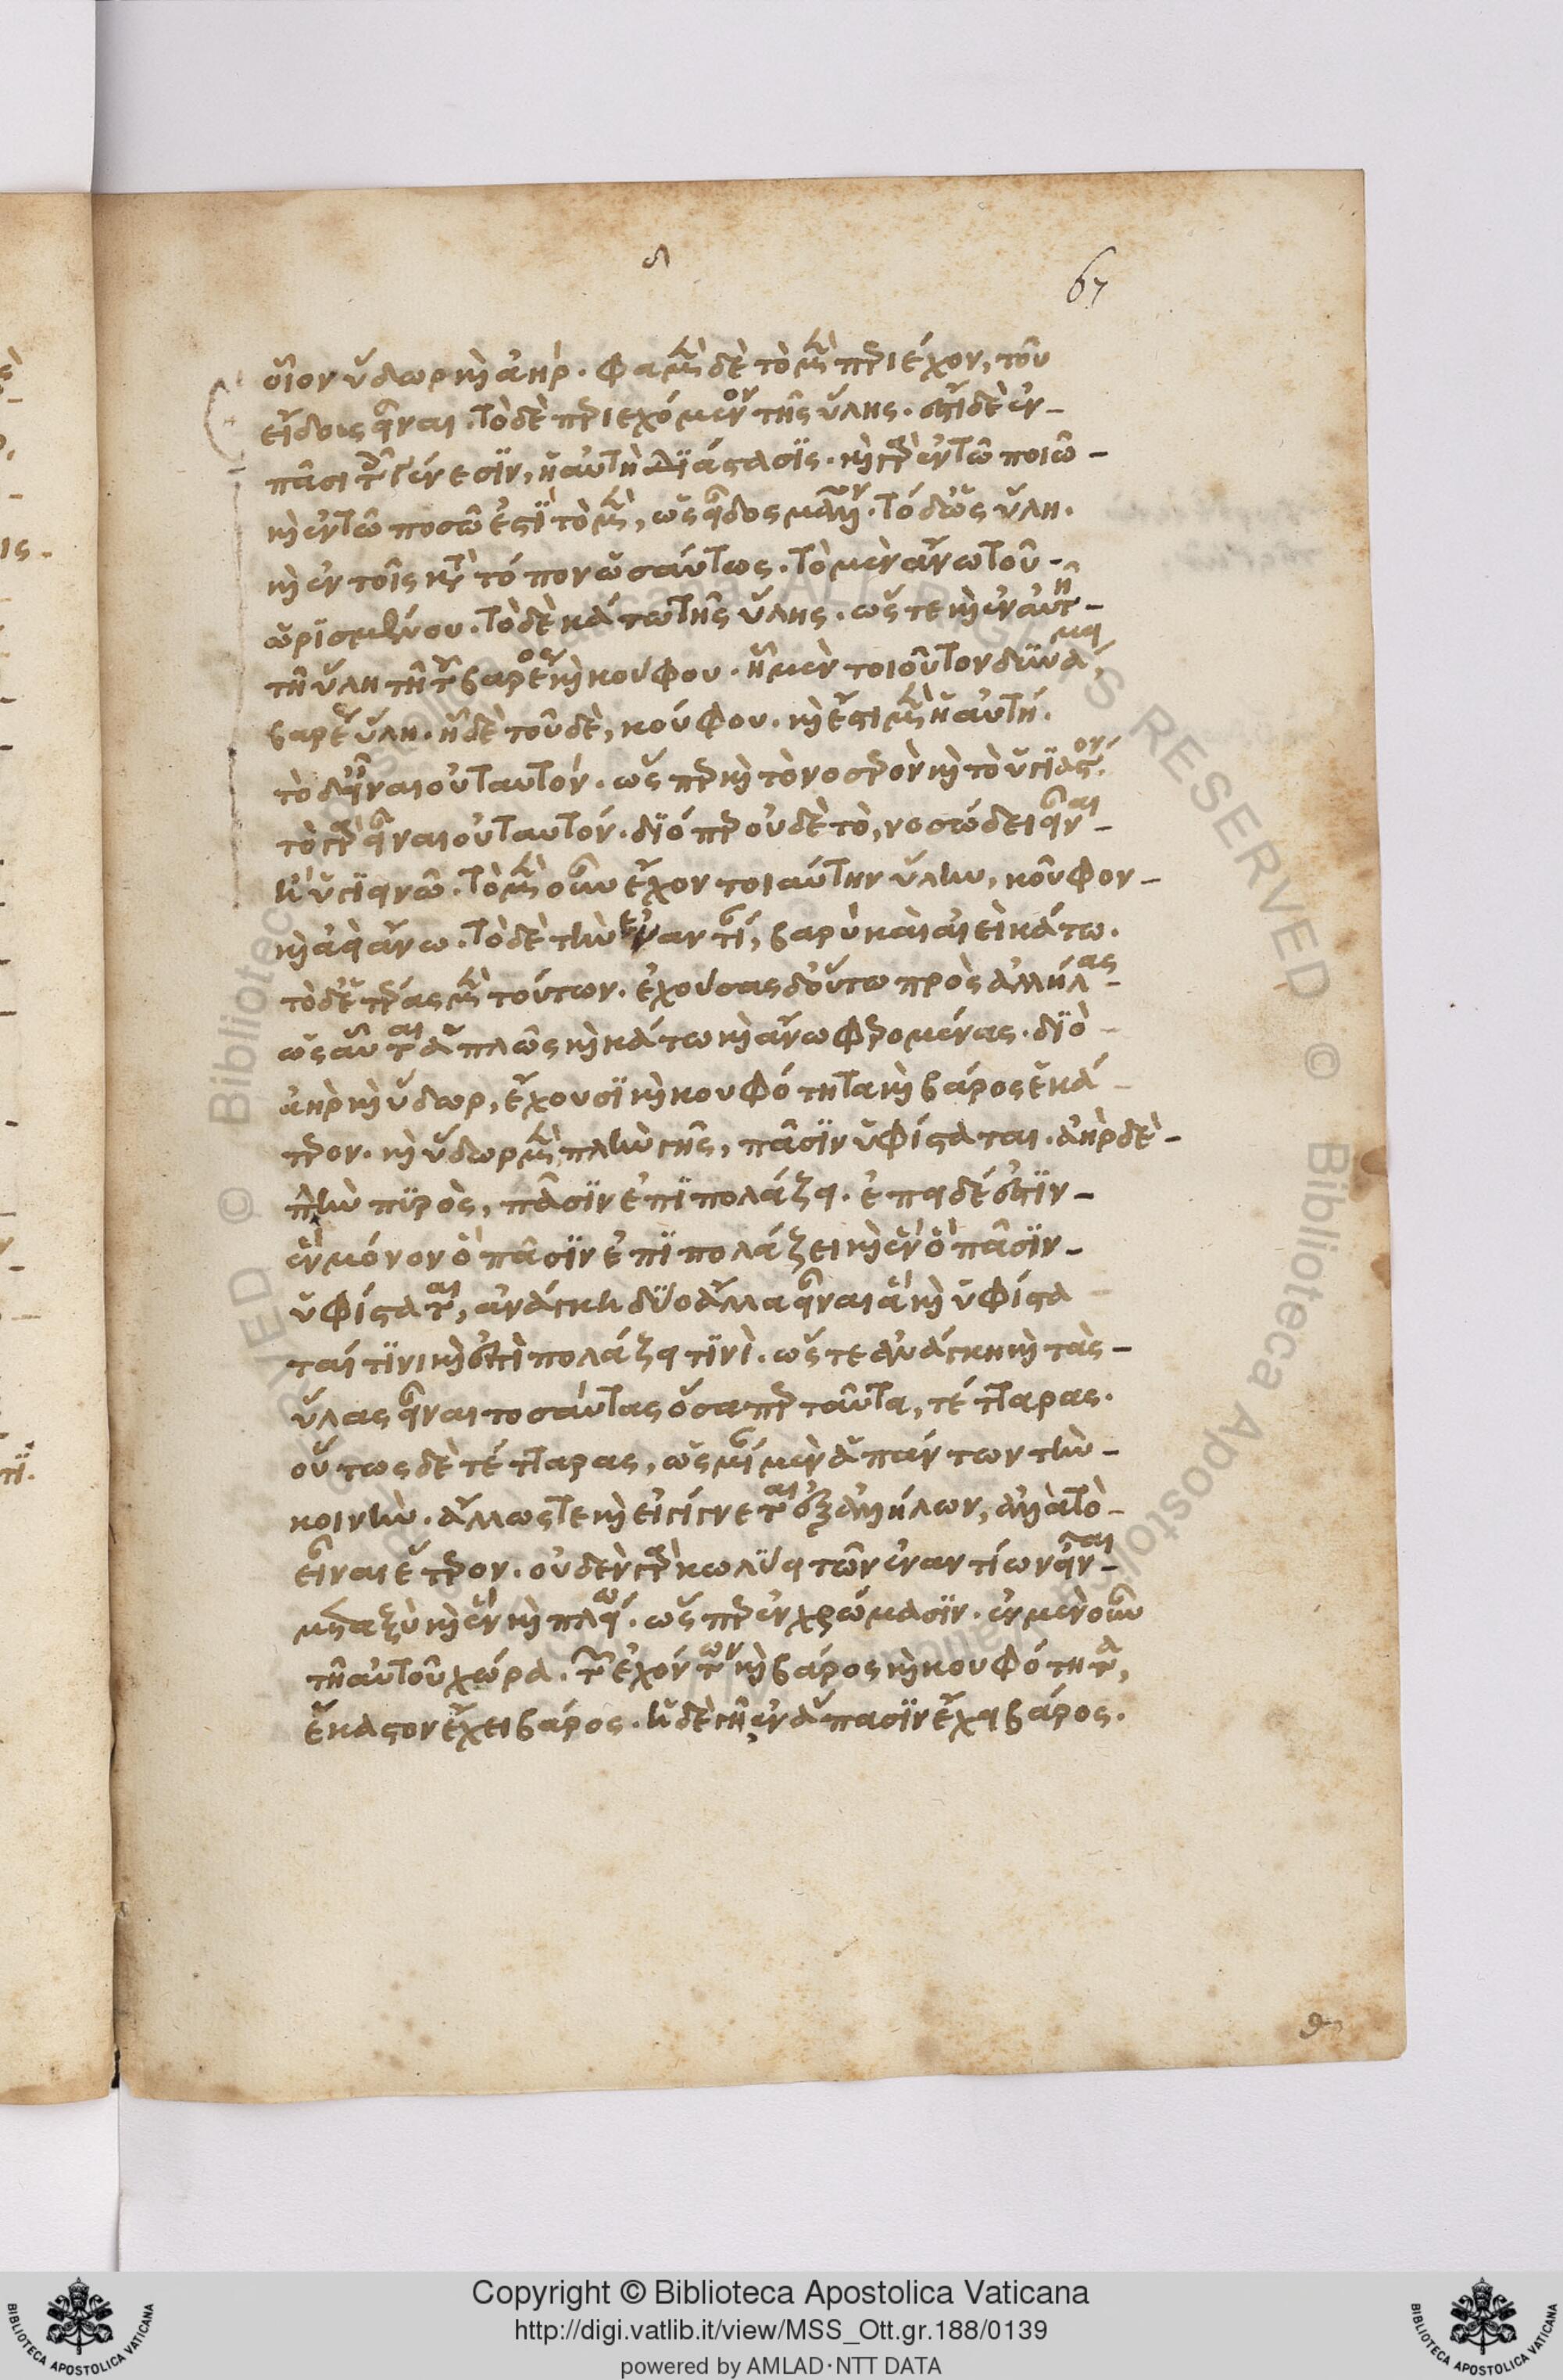 δ
67
οἷον ὕδωρ καὶ ἀήρ. φαμὲν δὲ τὸ μὲν περιέχον, τοῦ
εἴδους εἶναι. τὸ δὲ περιεχόμενον τῆς ὕλης. ἔστι δὲ ἐν
πᾶσι τοῖς γένεσιν, ἡ αὐτὴ διάστασις. καὶ γὰρ ἐν τῶ ποιῶ
καὶ ἐν τῶ ποσῶ ἐστὶ τὸ μὲν, ὡς εἶδος μᾶλλον. τὸ δ' ὡς ὕλη.
καὶ ἐν τοῖς κατὰ τόπον ὡσαύτως. τὸ μὲν ἄνω τοῦ
ὡρισμένου. τὸ δὲ κάτω τῆς ὕλης. ὥστε καὶ ἐν αὐτῆ
τῆ ὕλη τῆ τοῦ βαρέος καὶ κούφου. ἧ μὲν τοιοῦτον δυνάμει,
βαρέος ὕλη. ἧ δὲ τοῦδε, κούφου. καὶ ἔστι μὲν ἡ αὐτή.
τὸ δ' εἶναι οὐ ταυτόν. ὥσπερ καὶ τὸ νοσερὸν καὶ τὸ ὑγιαστόν.
τὸ γὰρ εἶναι οὐ ταυτόν. διόπερ οὐδὲ τὸ, νοσώδει εἶναι
ἢ ὑγιεινῶ. τὸ μὲν οὖν ἔχον τοιαύτην ὕλην, κοῦφον
καὶ ἀεὶ ἄνω. τὸ δὲ τὴν ἐναντίαν, βαρὺ καὶ αἰεὶ κάτω.
τὸ δ' ἑτέρας μὲν τούτων. ἐχούσας δ' οὕτω πρὸς ἀλλήλας
ὡς αὗται ἁπλῶς καὶ κάτω καὶ ἄνω φερομένας. διὸ
ἀὴρ καὶ ὕδωρ, ἔχουσι καὶ κουφότητα καὶ βάρος ἑκά
τερον. καὶ ὕδωρ μὲν πλὴν γῆς, πᾶσιν ὑφίσταται. ἀὴρ δὲ
πλὴν πυρὸς, πᾶσιν ἐπιπολάζει. ἐπεὶ δέ ἐστιν
ἓν μόνον ὃ πᾶσιν ἐπιπολάζει καὶ ἓν ὃ πᾶσιν
ὑφίσταται, ἀνάγκη δύο ἄλλα εἶναι ἃ καὶ ὑφίστα
ταί τινι καὶ ἐπιπολάζει τινί. ὥστε ἀνάγκη καὶ τὰς
ὕλας εἶναι τοσαύτας ὅσαπερ ταῦτα, τέτταρας.
οὕτως δὲ τέτταρας, ὡς μίαν μὲν ἁπάντων τὴν
κοινήν. ἄλλως τε καὶ εἰ γίγνεται ἐξ ἀλλήλων, ἀλλὰ τὸ
εἶναι ἕτερον. οὐδὲν γὰρ κωλύει τῶν ἐναντίων εἶναι
μεταξὺ καὶ ἓν καὶ πλείω. ὥσπερ ἐν χρώμασιν. ἐν μὲν οὖν
τῆ αὐτοῦ χώρα. τῶν ἐχόντων καὶ βάρος καὶ κουφότητα,
ἕκαστον ἔχει βάρος. ἡ δὲ γῆ ἐν ἅπασιν ἔχει βάρος.
Copyright © Biblioteca Apostolica Vaticana
http://digi.vatlib.it/view/MSS_Ott.gr.188/0139
powered by AMLAD·NTT DATA